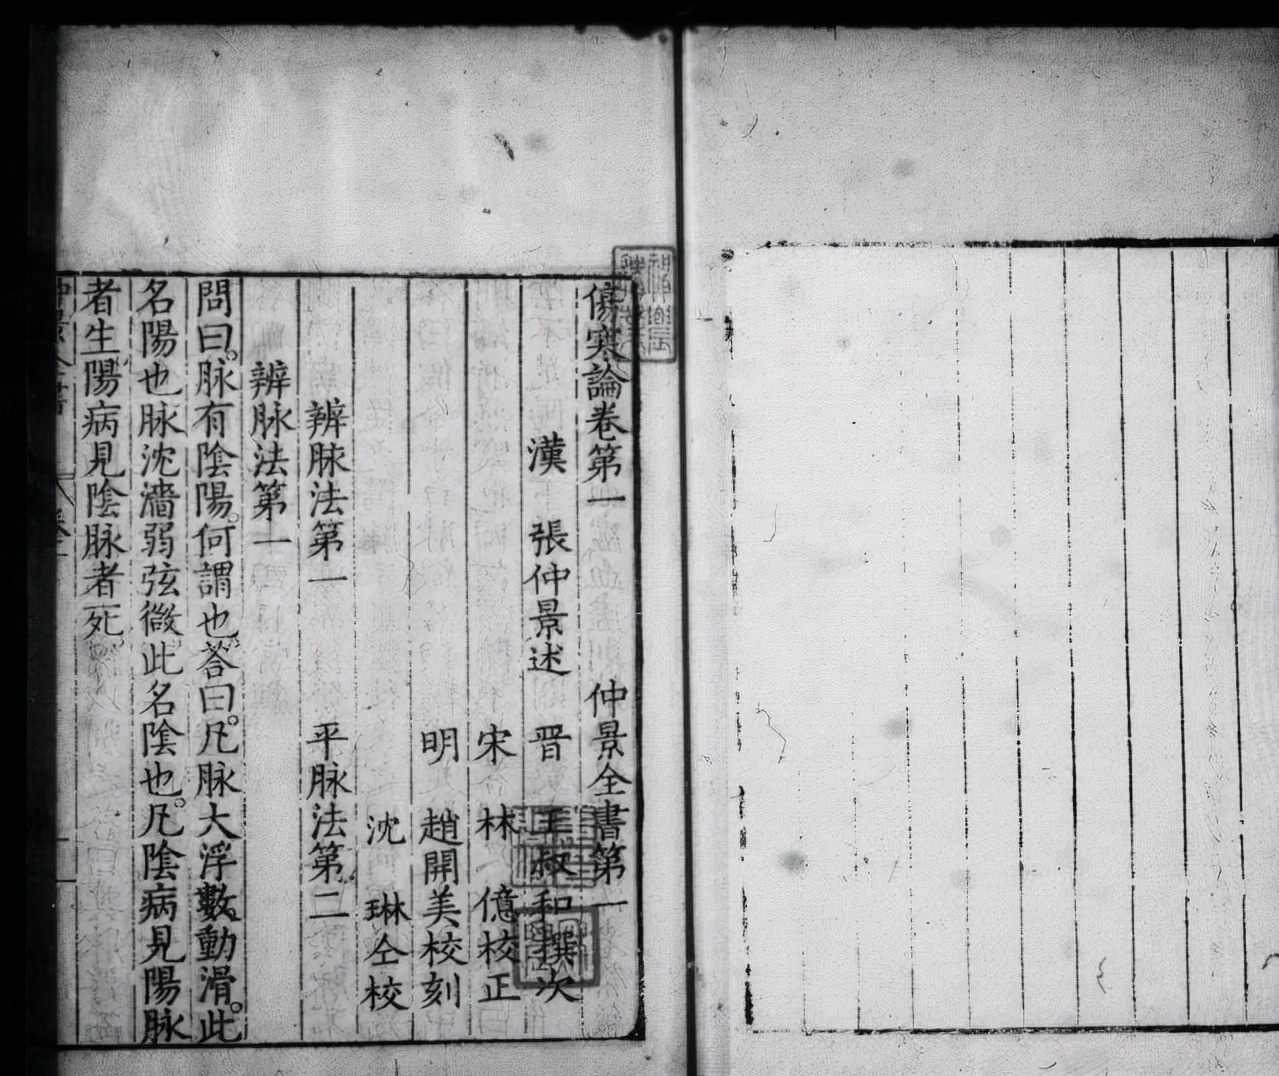 傷寒論卷第一　仲景全書第一
漢　張仲景述　晋　王叔和撰次
宋　林　億校正
明　趙開美校刻
沈　琳仝校
辨脉法第一　平脉法第二
辨脉法第一
問曰。脉有陰陽。何謂也。荅曰。凡脉大浮數動滑。此
名陽也脉沈濇弱弦微此名陰也。凡陰病見陽脉
者生陽病見陰脉者死